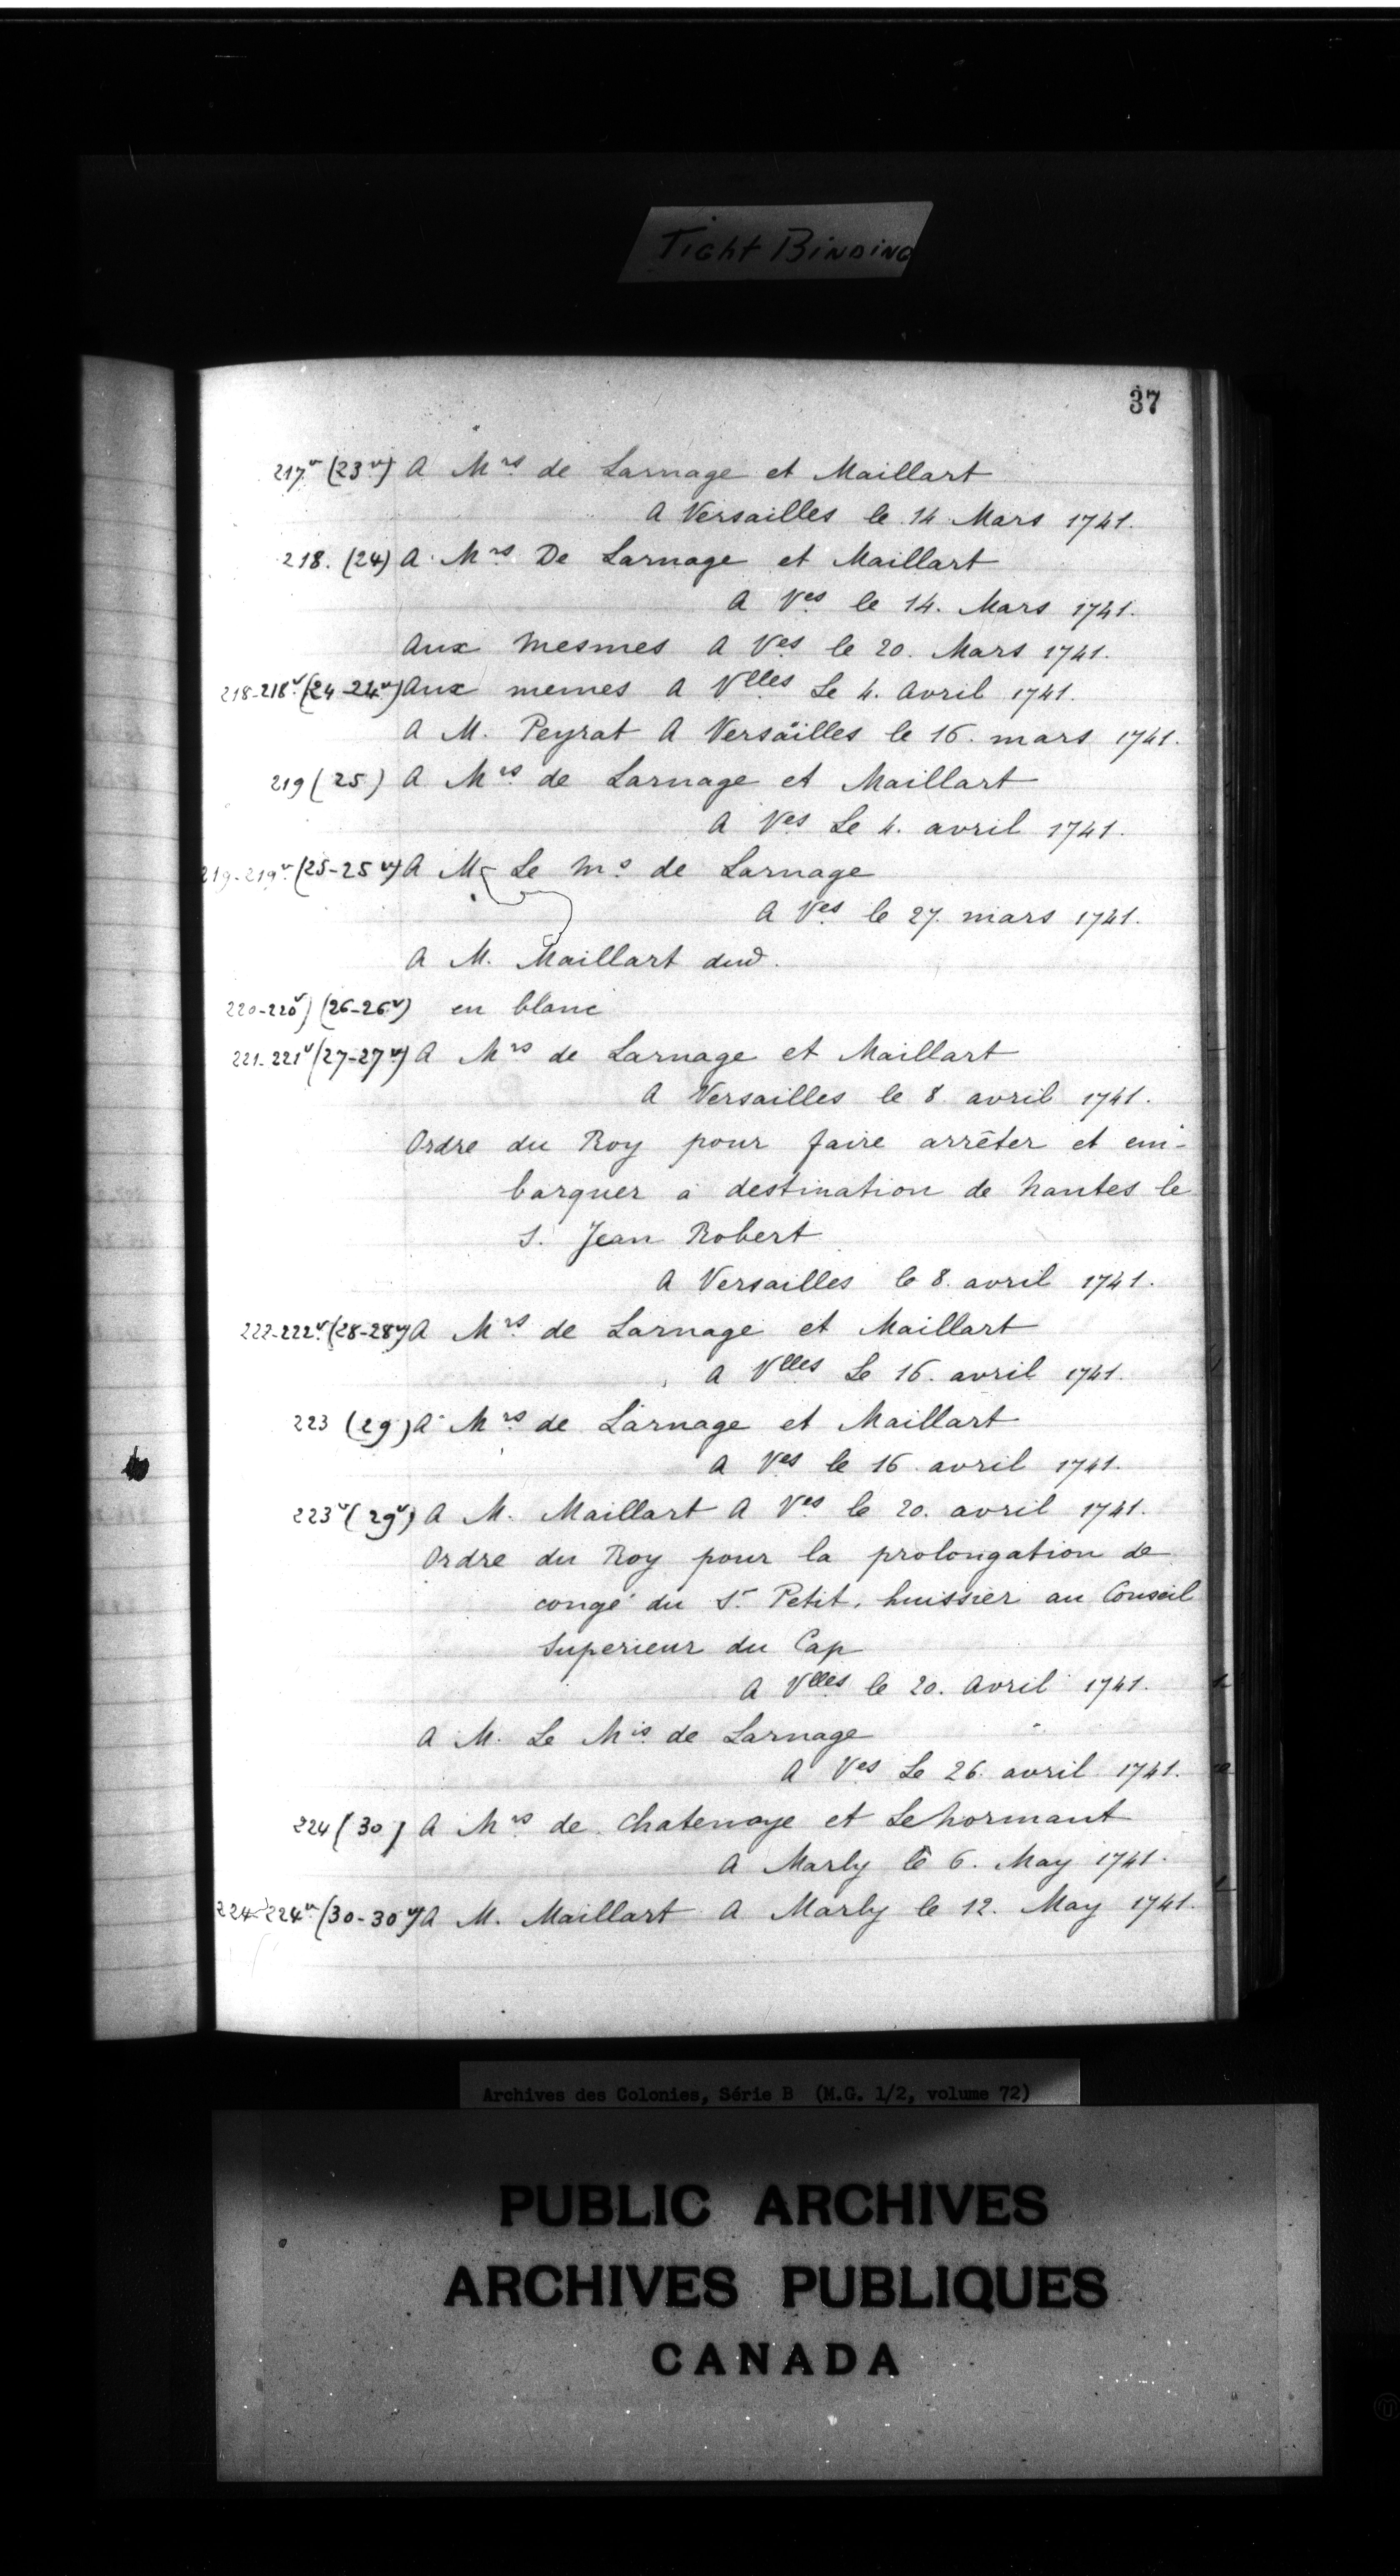 Tight Binding
37
217v (23v) A Mrs de Larnage et Maillart
A Versailles le 14 Mars 1741.
218. (24) A Mrs De Larnage et Maillart
A Ves le 14. Mars 1741.
Aux mesmes A Ves le 20. Mars 1741.
218-218v (24-24v) Aux memes A Vlles Le 4. Avril 1741.
A M. Peyrat A Versailles le 16. mars 1741.
219 (25) A Mrs de Larnage et Maillart
A Ves Le 4. avril 1741.
219-219v (25-25v) A M. Le Ms de Larnage
A Ves le 27. mars 1741.
A M. Maillart dud.
220-220v) (26-26v) en blanc
221-221v (27-27v) A Mrs de Larnage et Maillart
A Versailles le 8 avril 1741.
Ordre du Roy pour faire arrêter et em-
barquer a destination de Nantes le
S. Jean Robert
A Versailles le 8. avril 1741.
222-222v (28-28v) A Mrs de Larnage et Maillart
A Vlles Le 16. avril 1741.
223 (29) A Mrs de Larnage et Maillart
A Ves le 16 avril 1741.
223v (29v) A M. Maillart A Ves le 20. avril 1741.
Ordre du Roy pour la prolongation de
congé du Sr Petit, huissier au Conseil
Superieur du Cap
A Vlles le 20. Avril 1741.
A M. Le Mis de Larnage
A Ves Le 26. avril 1741.
224 (30) A Mrs de Chatenoye et Le Normant
A Marly le 6. May 1741.
224-224v (30-30v) A M. Maillart A Marly le 12. May 1741.
Archives des Colonies, Série B (M.G. 1/2, volume 72)
PUBLIC ARCHIVES
ARCHIVES PUBLIQUES
CANADA